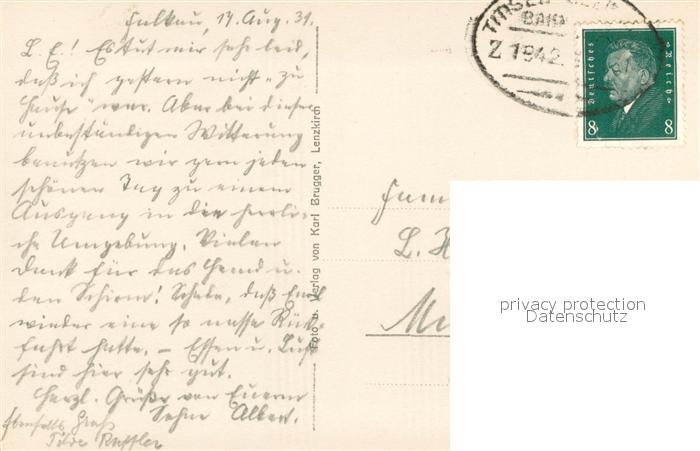 Falkau, 17. Aug. 31.
L. E.! Es tut mir sehr leid,
daß ich gestern nicht „zu
Hause" war. Aber bei dieser
unbeständigen Witterung
benutzen wir gern jeden
schönen Tag zu einem
Ausgang in die herrli-
che Umgebung. Vielen
Dank für das Hemd u.
den Schirm! Schade, daß Emil
wieder eine so nasse Rück-
fahrt hatte. – Essen u. Luft
sind hier sehr gut.
Herzl. Grüße von Euerm
Sohne Albert.
Ebenfalls Gruß
Tilde
Foto u. Verlag von Karl Brugger, Lenzkirch
BAHN
Z 1942
Deutsches Reich
8 8
Fam
L. H
M
privacy protection
Datenschutz